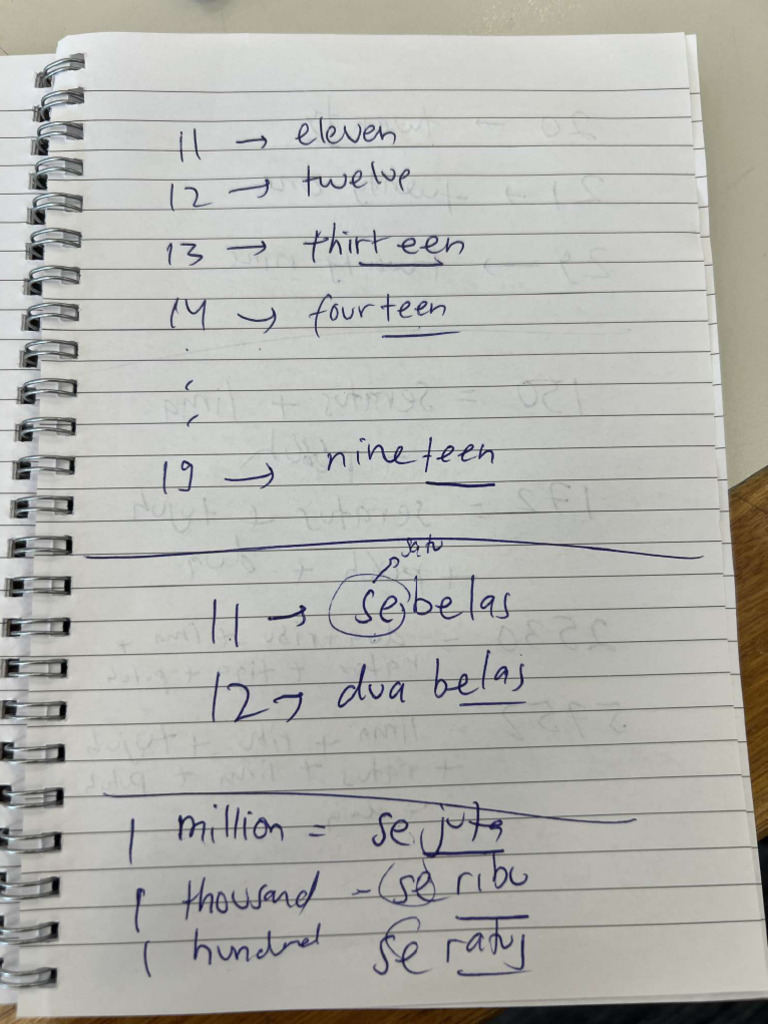 11 → eleven
12 → twelve
13 → thirteen
14 → fourteen
19 → nineteen
satu
11 → sebelas
12 → dua belas
1 million = se juta
1 thousand - (se) ribu
1 hundred se ratus